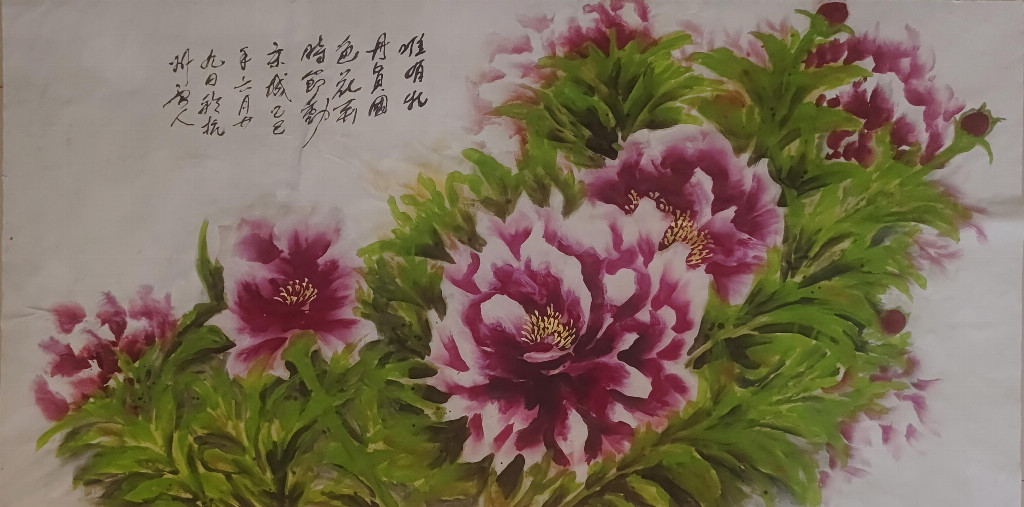 唯有牡
丹真國
色花開
時節動
京城乙巳
年六月廿
九日於杭
州人